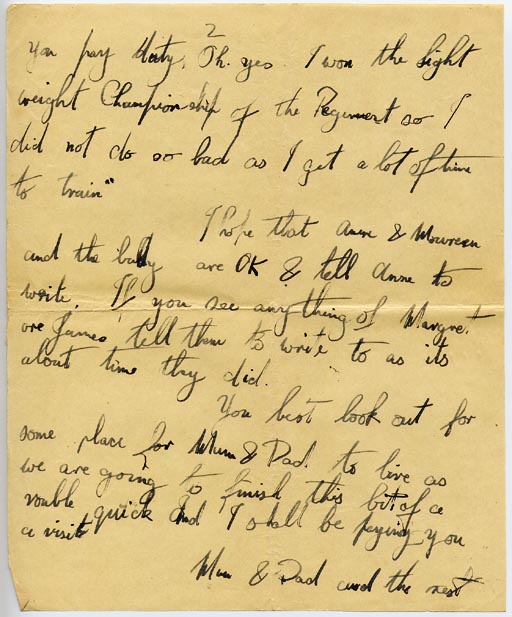 2
you pay duty, Oh. yes. I won the light
weight Championship of the Regiment so I
did not do so bad as I get a lot of time
to train"
I hope that Anne & Moureen
and the baby are OK & tell Anne to
write. If you see anything of Margret
ore James tell them to write to as its
about time they did.
You best look out for
some place for Mum & Dad. to live as
we are going to finish this bit of a
rouble quick and I shall be paying you
a visit
Mum & Dad and the rest